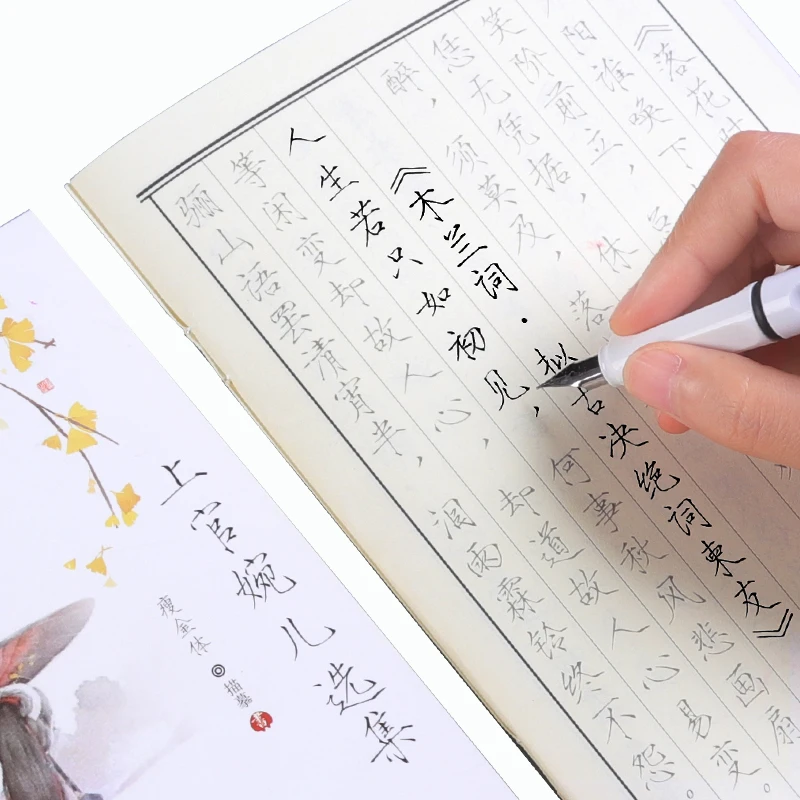 《落花
阳谁唤下
笑阶前立，
恁无凭据，休
醉，须莫及，落
《木兰词·拟古决绝词柬友》
人生若只如初见，何事秋风悲画扇
等闲变却故人心，却道故人心易变。
骊山语罢清宵半，泪雨霖铃终不怨。
上官婉儿选集
瘦金体◎描摹